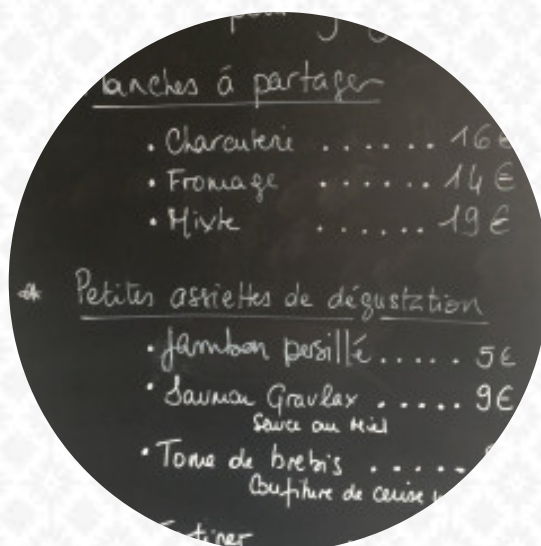 pour
Planches à partager
• Charcuterie ...... 16€
• Fromage ...... 14€
• Mixte ...... 19€
* Petites assiettes de dégustation
• Jambon persillé ..... 5€
• Saumon Gravlax ..... 9€
Sauce au Miel
• Tome de brebis .....
Confiture de cerise